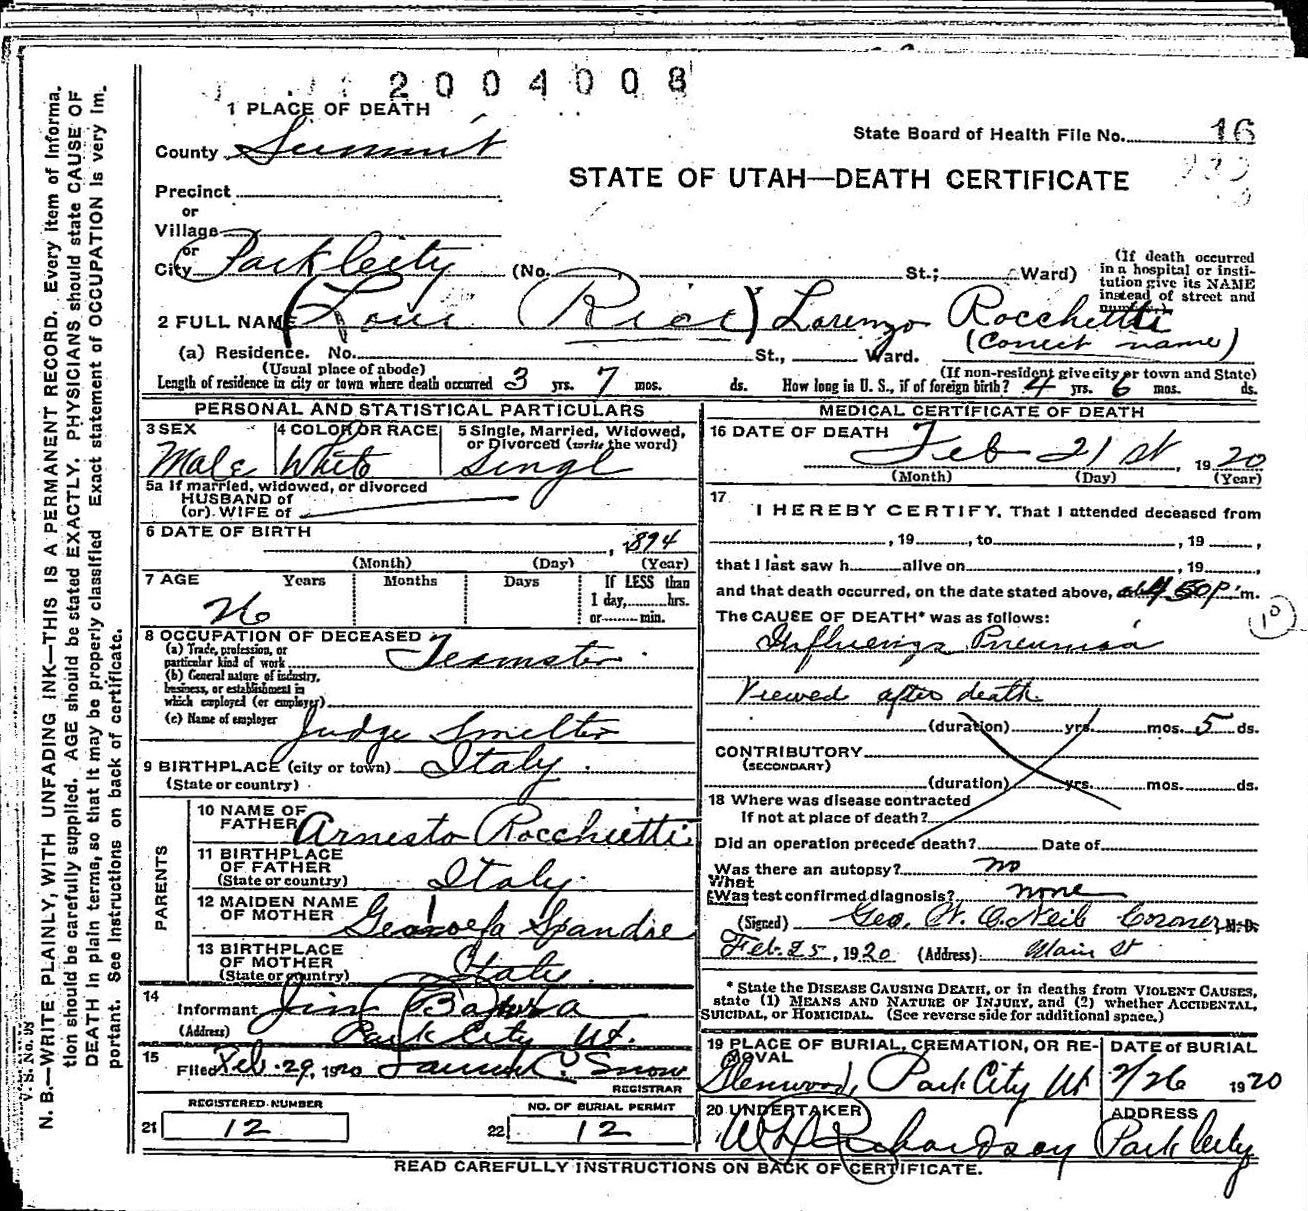 2004008
1 PLACE OF DEATH
State Board of Health File No. 16
County Summit
STATE OF UTAH—DEATH CERTIFICATE
Precinct
or
Village
or
City Park City (No. St.; Ward)
(If death occurred in a hospital or insti-
tution give its NAME
instead of street and
number.)
2 FULL NAME (Loui Rici) Lorenzo Rocchetti
(Correct name)
(a) Residence. No. St., Ward.
(Usual place of abode) (If non-resident give city or town and State)
Length of residence in city or town where death occurred 3 yrs. 7 mos. ds. How long in U. S., if of foreign birth? 4 yrs. 6 mos. ds.
PERSONAL AND STATISTICAL PARTICULARS
3 SEX Male
4 COLOR OR RACE White
5 Single, Married, Widowed,
or Divorced (write the word)
Singl
5a If married, widowed, or divorced
HUSBAND of
(or) WIFE of
6 DATE OF BIRTH , 1894
(Month) (Day) (Year)
7 AGE Years Months Days If LESS than
1 day, hrs.
or min.
26
8 OCCUPATION OF DECEASED
(a) Trade, profession, or
particular kind of work Teamster
(b) General nature of industry,
business, or establishment in
which employed (or employer)
(c) Name of employer Judge Smelter
9 BIRTHPLACE (city or town) Italy.
(State or country)
PARENTS
10 NAME OF
FATHER Arnesto Rocchietti
11 BIRTHPLACE
OF FATHER
(State or country) Italy.
12 MAIDEN NAME
OF MOTHER Spandre
13 BIRTHPLACE
OF MOTHER
(State or country) Italy.
14
Informant Jim
(Address) Park City Ut.
15
Filed Feb. 29, 1920 Snow
REGISTRAR
REGISTERED NUMBER
21 12
NO. OF BURIAL PERMIT
22 12
MEDICAL CERTIFICATE OF DEATH
16 DATE OF DEATH Feb 21 st , 1920
(Month) (Day) (Year)
17
I HEREBY CERTIFY, That I attended deceased from
, 19 , to , 19 ,
that I last saw h alive on , 19 ,
and that death occurred, on the date stated above, at 4 50 P. m.
The CAUSE OF DEATH* was as follows:
10
Influenza Pneumonia
Viewed after death.
(duration) yrs. mos. 5 ds.
CONTRIBUTORY
(SECONDARY)
(duration) yrs. mos. ds.
18 Where was disease contracted
If not at place of death?
Did an operation precede death? Date of
Was there an autopsy? no
What
Was test confirmed diagnosis? none
(Signed) Geo. W. O.Neil Coroner M. D.
Feb. 25, 1920 (Address) Main St
* State the DISEASE CAUSING DEATH, or in deaths from VIOLENT CAUSES,
state (1) MEANS AND NATURE OF INJURY, and (2) whether ACCIDENTAL,
SUICIDAL, or HOMICIDAL. (See reverse side for additional space.)
19 PLACE OF BURIAL, CREMATION, OR RE-
MOVAL
Glenwood, Park City Ut
DATE of BURIAL
2/26 1920
20 UNDERTAKER
W H Richardson
ADDRESS
Park City
READ CAREFULLY INSTRUCTIONS ON BACK OF CERTIFICATE.
V. S. No. 98
N. B.—WRITE PLAINLY, WITH UNFADING INK—THIS IS A PERMANENT RECORD. Every item of Informa-
tion should be carefully supplied. AGE should be stated EXACTLY. PHYSICIANS should state CAUSE OF
DEATH in plain terms, so that it may be properly classified. Exact statement of OCCUPATION is very im-
portant. See Instructions on back of certificate.